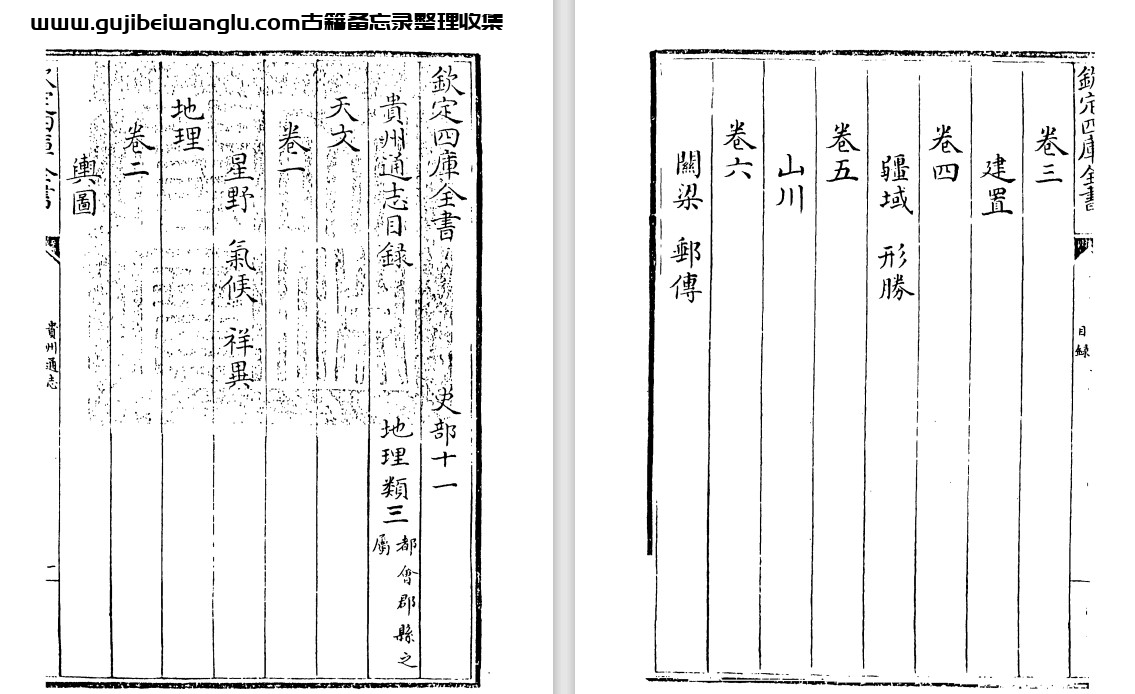 www.gujibeiwanglu.com古籍备忘录整理收集
欽定四庫全書 史部十一
貴州通志目録 地理類三 都會郡縣之屬
天文
卷一
星野 氣候 祥異
地理
卷二
輿圖
欽定四庫全書
貴州通志
欽定四庫全書
目録
卷三
建置
卷四
疆域 形勝
卷五
山川
卷六
關梁 郵傳